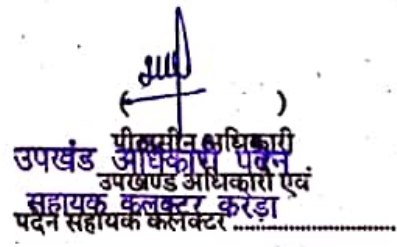 ( )
पीठासीन अधिकारी
उपखंड अधिकारी पदेन
उपखण्ड अधिकारी एवं
सहायक कलक्टर करेड़ा
पदेन सहायक कलक्टर ..............................